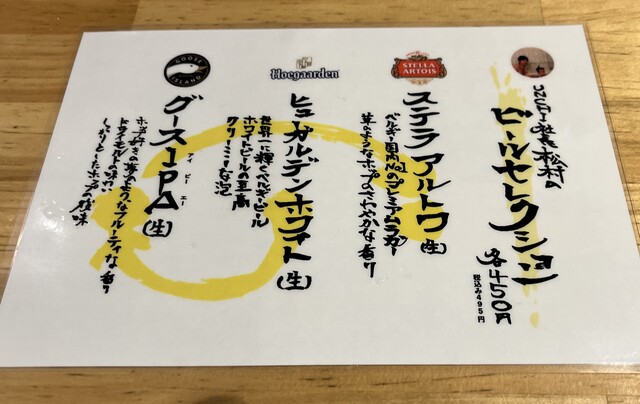 松村の
ビールセレクション
各450円
税込み495円
STELLA
ARTOIS
ステラアルトワ(生)
ベルギー国内No.1のプレミアムラガー
草のようなホップのさわやかな香り
Hoegaarden
ヒューガルデンホワイト(生)
世界一に輝くベルギービール
ホワイトビールの王商
クリーミーな泡
GOOSE
ISLAND
グースIPA(生)
アイピーエー
ドライモルトの味わい
しっかりとしたホップの後味